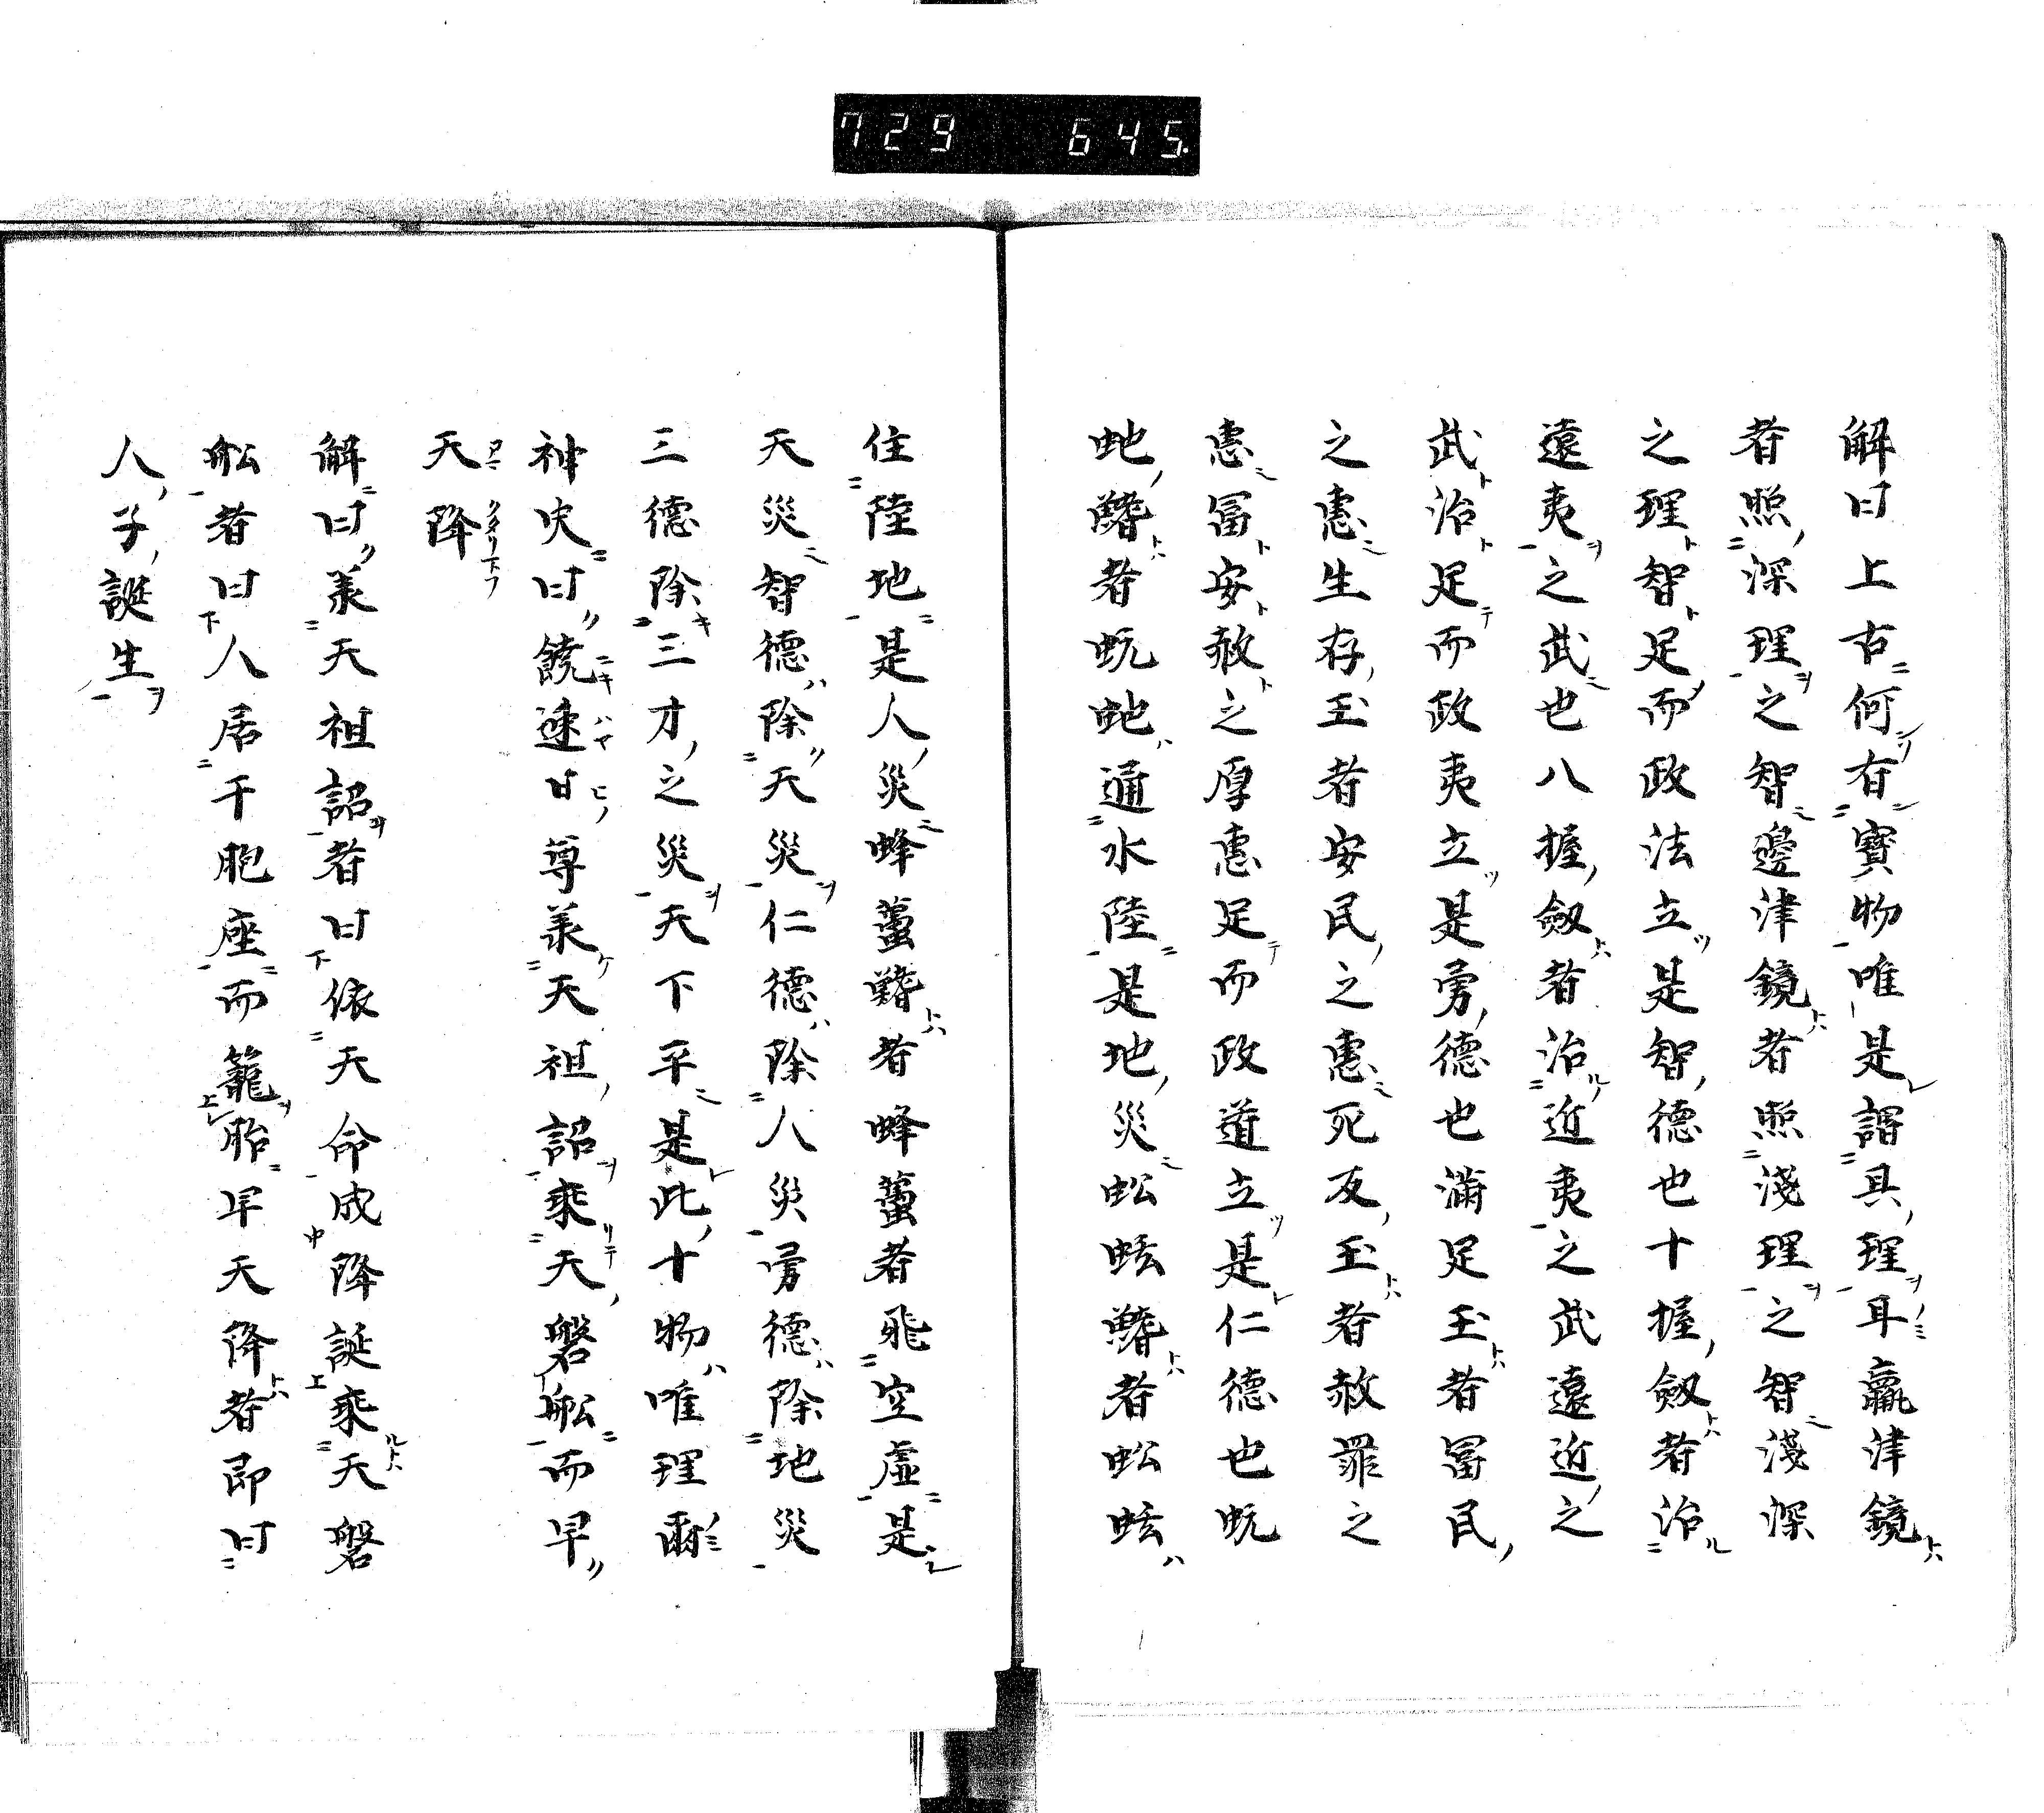 729 645
解曰上古何有寳物唯是謂具理耳羸津鏡
者照深理之智邊津鏡者照淺理之智淺深
之理智足而政法立是智德也十握劔者治
遠夷之武也八握劔者治近夷之武遠近之
武治足而政夷立是勇德也滿足玉者冨民
之惠生存玉者安民之惠死反玉者赦罪之
惠冨安赦之厚惠足而政道立是仁德也蚖
虵者蚖虵通水陸是地災蚣蚿者蚣蚿
住陸地是人災蜂蠆者蜂蠆者飛空虛是
天災智德除天災仁德除人災勇德除地災
三德除三才之災天下平是此十物唯理爾
神史曰饒速日尊美天祖詔乘天磐舩而早
天降
解曰美天祖詔者曰依天命成降誕乘天磐
舩者曰人居于胞座而籠胎早天降者即曰
人子誕生